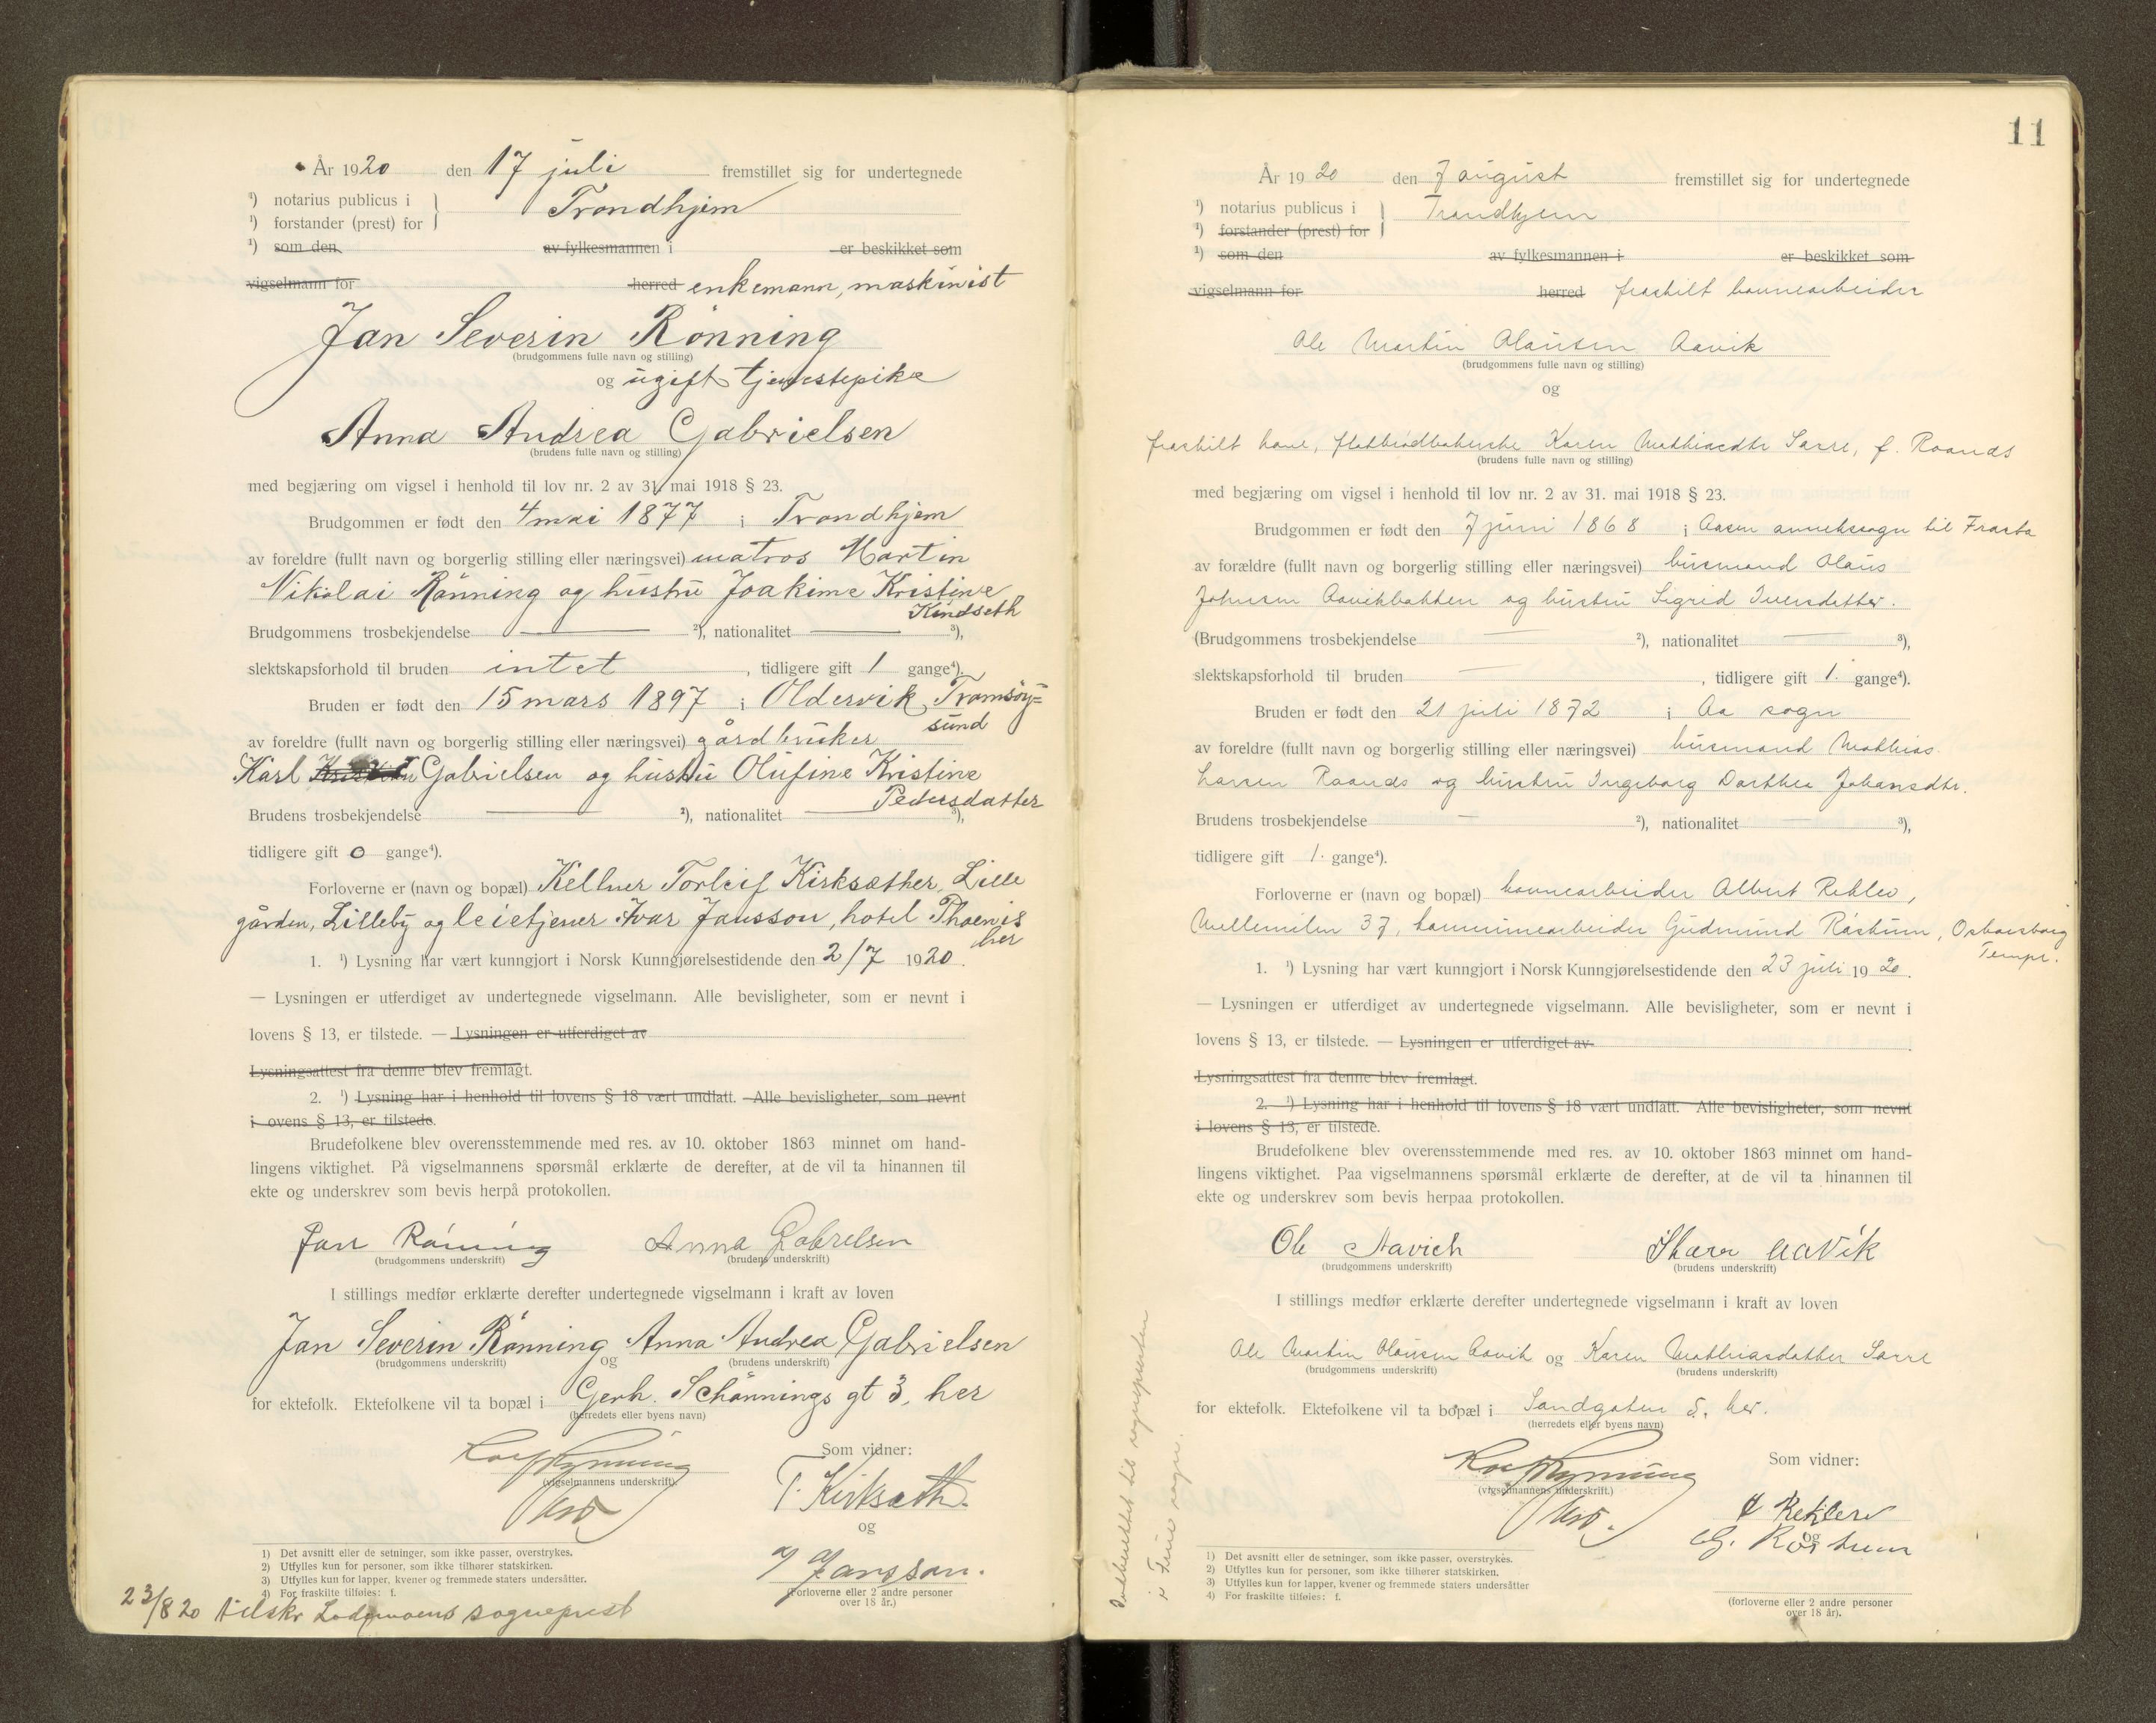 År 1920 den 17 juli fremstillet sig for undertegnede
¹) notarius publicus i
¹) forstander (prest) for } Trondhjem
¹) som den av fylkesmannen i er beskikket som
vigselmann for herred enkemann, maskinist
Jan Severin Rönning
(brudgommens fulle navn og stilling)
og ugift tjenestepike
Anna Andrea Gabrielsen
(brudens fulle navn og stilling)
med begjæring om vigsel i henhold til lov nr. 2 av 31. mai 1918 § 23.
Brudgommen er født den 4 mai 1877 i Trondhjem
av foreldre (fullt navn og borgerlig stilling eller næringsvei) matros Martin
Nikolai Rönning og hustru Joakime Kristine
Kindseth
Brudgommens trosbekjendelse — ²), nationalitet — ³),
slektskapsforhold til bruden intet, tidligere gift 1 gange⁴).
Bruden er født den 15 mars 1897 i Oldervik, Tromsöy=
sund
av foreldre (fullt navn og borgerlig stilling eller næringsvei) gårdbruker
Karl Gabrielsen og hustru Olufine Kristine
Pedersdatter
Brudens trosbekjendelse — ²), nationalitet — ³),
tidligere gift 0 gange⁴).
Forloverne er (navn og bopæl) Kellner Torleif Kirksæther, Lille
gården, Lilleby og leietjener Ivar Jansson, hotel Phoenis
her
1. ¹) Lysning har vært kunngjort i Norsk Kunngjørelsestidende den 2/7 1920.
— Lysningen er utferdiget av undertegnede vigselmann. Alle bevisligheter, som er nevnt i
lovens § 13, er tilstede. — Lysningen er utferdiget av
Lysningsattest fra denne blev fremlagt.
2. ¹) Lysning har i henhold til lovens § 18 vært undlatt. Alle bevisligheter, som nevnt
i ovens § 13, er tilstede.
Brudefolkene blev overensstemmende med res. av 10. oktober 1863 minnet om hand-
lingens viktighet. På vigselmannens spørsmål erklærte de derefter, at de vil ta hinannen til
ekte og underskrev som bevis herpå protokollen.
Jan Röning Anna Gabrelsen
(brudgommens underskrift) (brudens underskrift)
I stillings medfør erklærte derefter undertegnede vigselmann i kraft av loven
Jan Severin Rönning og Anna Andrea Gabrielsen
(brudgommens underskrift) (brudens underskrift)
for ektefolk. Ektefolkene vil ta bopæl i Gerh. Schönnings gt 3, her
(herredets eller byens navn)
Som vidner:
(vigselmannens underskrift).
T. Kirksæth.
og
Jansson.
(Forloverne eller 2 andre personer
over 18 år.)
1) Det avsnitt eller de setninger, som ikke passer, overstrykes.
2) Utfylles kun for personer, som ikke tilhører statskirken.
3) Utfylles kun for lapper, kvener og fremmede staters undersåtter.
4) For fraskilte tilføies: f.
23/8 20 tilskr Lademoens sogneprest
11
År 1920 den 7 august fremstillet sig for undertegnede
¹) notarius publicus i
¹) forstander (prest) for } Trondhjem
¹) som den av fylkesmannen i er beskikket som
vigselmann for herred fraskilt havnearbeider
Ole Martin Olausen Aavik
(brudgommens fulle navn og stilling)
og
fraskilt kone, flatbrödbakerske Karen Mathiasdtr Sarre, f. Raands
(brudens fulle navn og stilling)
med begjæring om vigsel i henhold til lov nr. 2 av 31. mai 1918 § 23.
Brudgommen er født den 7 juni 1868 i Aasen annekssogn til Frosta
av forældre (fullt navn og borgerlig stilling eller næringsvei) husmand Olaus
Johnsen Aavikbakken og hustru Sigrid Iversdatter.
(Brudgommens trosbekjendelse — ²), nationalitet — ³),
slektskapsforhold til bruden —, tidligere gift 1. gange⁴).
Bruden er født den 21 juli 1872 i Aa sogn
av foreldre (fullt navn og borgerlig stilling eller næringsvei) husmand Mathias
Larsen Raands og hustru Ingeborg Dorthea Johansdtr.
Brudens trosbekjendelse — ²), nationalitet — ³),
tidligere gift 1. gange⁴).
Forloverne er (navn og bopæl) havnearbeider Albert Reklev,
Mellemilen 37, Gudmund Röstum,
Tempe.
1. ¹) Lysning har vært kunngjort i Norsk Kunngjørelsestidende den 23 juli 1920.
— Lysningen er utferdiget av undertegnede vigselmann. Alle bevisligheter, som er nevnt i
lovens § 13, er tilstede. — Lysningen er utferdiget av
Lysningsattest fra denne blev fremlagt.
2. ¹) Lysning har i henhold til lovens § 18 vært undlatt. Alle bevisligheter, som nevnt
i lovens § 13, er tilstede.
Brudefolkene blev overensstemmende med res. av 10. oktober 1863 minnet om hand-
lingens viktighet. Paa vigselmannens spørsmål erklærte de derefter, at de vil ta hinannen til
ekte og underskrev som bevis herpaa protokollen.
Ole Aavich Aavik
(brudgommens underskrift) (brudens underskrift)
I stillings medfør erklærte derefter undertegnede vigselmann i kraft av loven
Ole Martin Olausen Aavik og Karen Mathiasdatter Sarre
(brudgommens underskrift) (brudens underskrift)
for ektefolk. Ektefolkene vil ta bopæl i Sandgaten 5, her.
(herredets eller byens navn)
Som vidner:
(vigselmannens underskrift.)
A Reklev
og
G. Röstum
(forloverne eller 2 andre personer
over 18 år).
1) Det avsnitt eller de setninger, som ikke passer, overstrykes.
2) Utfylles kun for personer, som ikke tilhører statskirken.
3) Utfylles kun for lapper, kvener og fremmede staters undersåtter
4) For fraskilte tilføies: f.
Indberettet til sognepresten